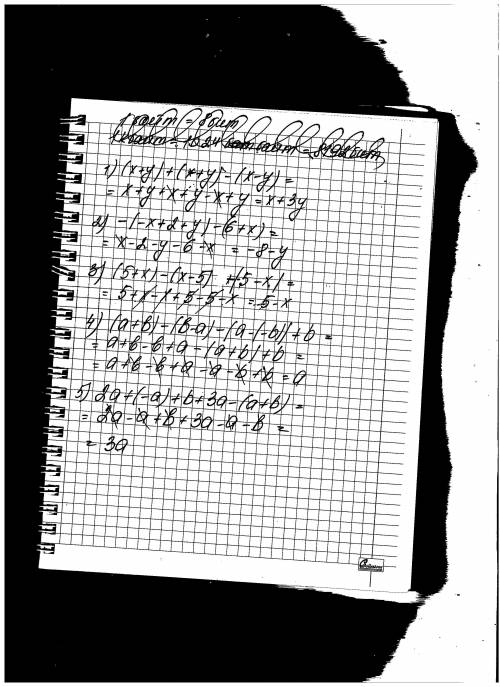 1 байт = 8 бит
1 кбайт = 1024 байт = 8192 бит
1) (x+y)+(x+y)-(x-y)=
= x+y+x+y-x+y = x+3y
2) -(-x+2+y)-(6+x)=
= x-2-y-6-x = -8-y
3) (5+x)-(x-5)+(5-x)=
= 5+x-x+5-5-x = 5-x
4) (a+b)-(b-a)-(a-(-b))+b =
= a+b-b+a-(a+b)+b =
= a+b-b+a-a-b+b = a
5) 2a+(-a)+b+3a-(a+b)=
= 2a-a+b+3a-a-b =
= 3a